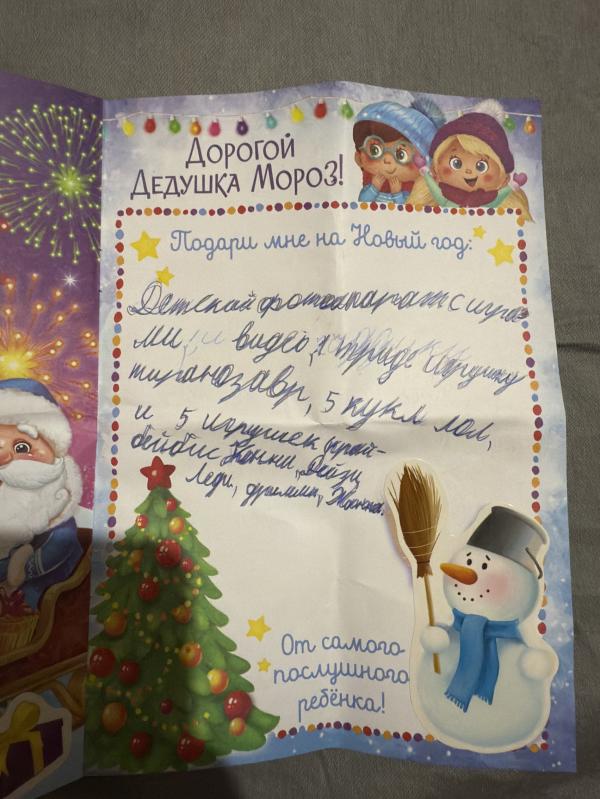 ДОРОГОЙ
ДЕДУШКА МОРОЗ!
Подари мне на Новый год:
Детский фотоаппарат с игра
ми, и видео, игрушку
тиранозавр, 5 кукл лол,
и 5 игрушек край-
бейбис Конни, Дейзи
Леди,
От самого
послушного
ребёнка!